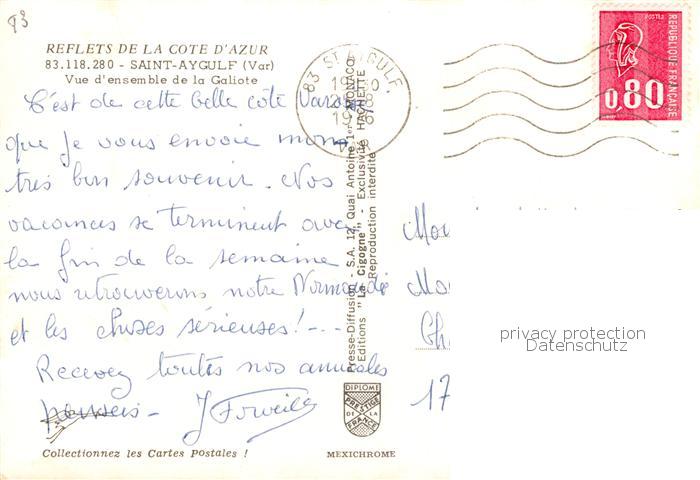 83
REFLETS DE LA COTE D'AZUR
83.118.280 - SAINT-AYGULF (Var)
Vue d'ensemble de la Galiote
C'est de cette belle côte Varoise
que je vous envoie mon
très bon souvenir. Nos
vacances se terminent avec
la fin de la semaine
nous retrouverons notre Normandie
et les choses sérieuses!---
Recevez toutes nos amicales
pensées -
Collectionnez les Cartes Postales !
MEXICHROME
DIPLOME
PRESTIGE
DE LA
FRANCE
Presse-Diffusion - S.A. 12, Quai Antoine 1er MONACO
Editions "La Cigogne" - Exclusivité HACHETTE
Reproduction interdite
83 ST AYGULF
VAR
POSTES
REPUBLIQUE FRANÇAISE
0,80
17
privacy protection
Datenschutz